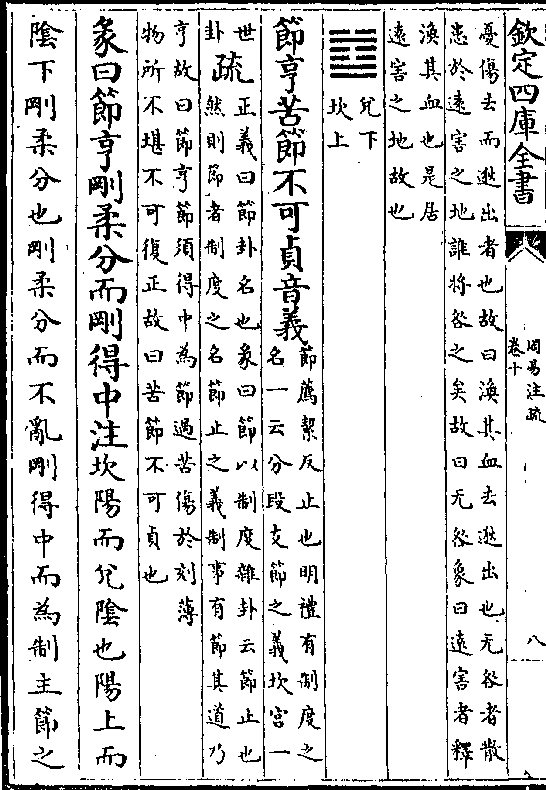 欽定四庫全書
周易注疏
卷十
八
憂傷去而逖出者也故曰渙其血去逖出也无咎者散
患於遠害之地誰將咎之矣故曰无咎象曰遠害者釋
渙其血也是居
遠害之地故也
兌下
坎上
節亨苦節不可貞音義
節薦絜反止也明禮有制度之
名一云分段支節之義坎宮一
世
卦
疏
正義曰節卦名也彖曰節以制度雜卦云節止也
然則節者制度之名節止之義制事有節其道乃
亨故曰節亨節須得中為節過苦傷於刻薄
物所不堪不可復正故曰苦節不可貞也
彖曰節亨剛柔分而剛得中注坎陽而兌陰也陽上而
陰下剛柔分也剛柔分而不亂剛得中而為制主節之